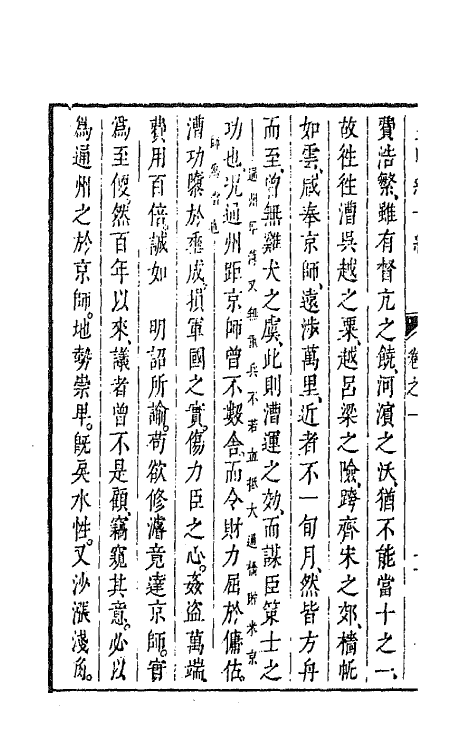 費浩繁雖有督亢之饒、河濱之沃、猶不能當十之一、
故徃徃漕吳越之粟、越呂梁之險、跨齊宋之郊、檣帆
如雲、咸奉京師、遠涉萬里、近者不一旬月、然皆方舟
而至、曾無雞犬之虞、此則漕運之効、而謀臣策士之
通州卑濕又無重兵不若直抵大通橋貯米京
師為省也
功也、况通州距京師曾不數舍、而令財力屈於傭估、
漕功隳於垂成、損軍國之實、傷力臣之心、姦盜萬端、
費用百倍、誠如　明詔所諭、苟欲修濬、竟達京師、實
為至便、然百年以來、議者曾不是顧、竊窺其意、必以
為通州之於京師、地勢崇卑、既吳水性、又沙漲淺
卷之一